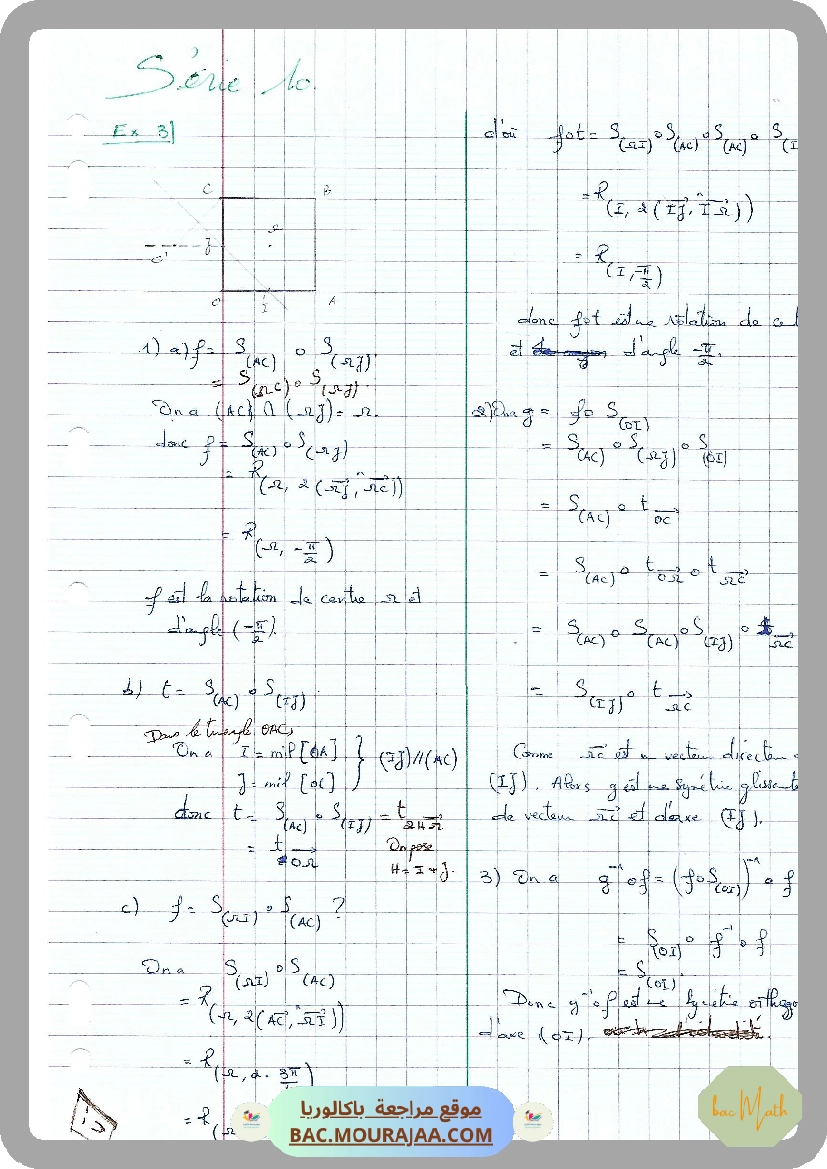 Série 10.
Ex 3)
C B
Ω
J
O'
O I A
1) a) f = S(AC) ∘ S(ΩJ)
= S(ΩC) ∘ S(ΩJ)
On a (AC) ∩ (ΩJ) = Ω.
donc f = S(AC) ∘ S(ΩJ)
= R(Ω, 2(ΩJ, ΩC))
= R(Ω, -π/2)
f est la rotation de centre Ω et
d'angle (-π/2).
b) t = S(AC) ∘ S(IJ)
Dans le triangle OAC,
On a I = mil [OA] } (IJ) // (AC)
J = mil [OC]
donc t = S(AC) ∘ S(IJ) = t 2HΩ
= t OΩ
On pose
H = I * J.
c) f = S(ΩI) ∘ S(AC) ?
On a S(ΩI) ∘ S(AC)
= R(Ω, 2(AC, ΩI))
= R(Ω, 2. 3π/
= R(Ω
d'où fot = S(ΩI) ∘ S(AC) ∘ S(AC) ∘ S(I
= R(I, 2(IJ, IΩ))
= R(I, -π/2)
donc fot est une rotation de ce
et d'angle -π/2.
2) On a g = f ∘ S(OI)
= S(AC) ∘ S(ΩJ) ∘ S(OI)
= S(AC) ∘ t OC
= S(AC) ∘ t OΩ ∘ t ΩC
= S(AC) ∘ S(AC) ∘ S(IJ) ∘ t ΩC
= S(IJ) ∘ t ΩC
Comme ΩC est un vecteur directeu
(IJ). Alors g est une symétrie glissante
de vecteur ΩC et d'axe (IJ).
3) On a g⁻¹ ∘ f = (f ∘ S(OI))⁻¹ ∘ f
= S(OI) ∘ f⁻¹ ∘ f
= S(OI).
Donc g⁻¹ ∘ f est une symétrie orthogo
d'axe (OI).
موقع مراجعة باكالوريا
BAC.MOURAJAA.COM
bac Math